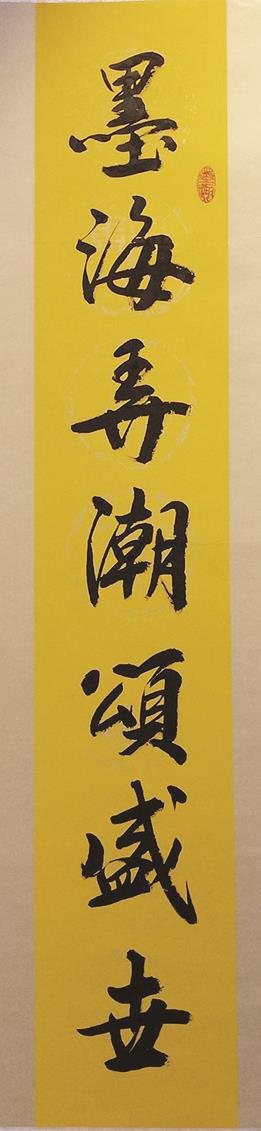 墨海弄潮頌盛世